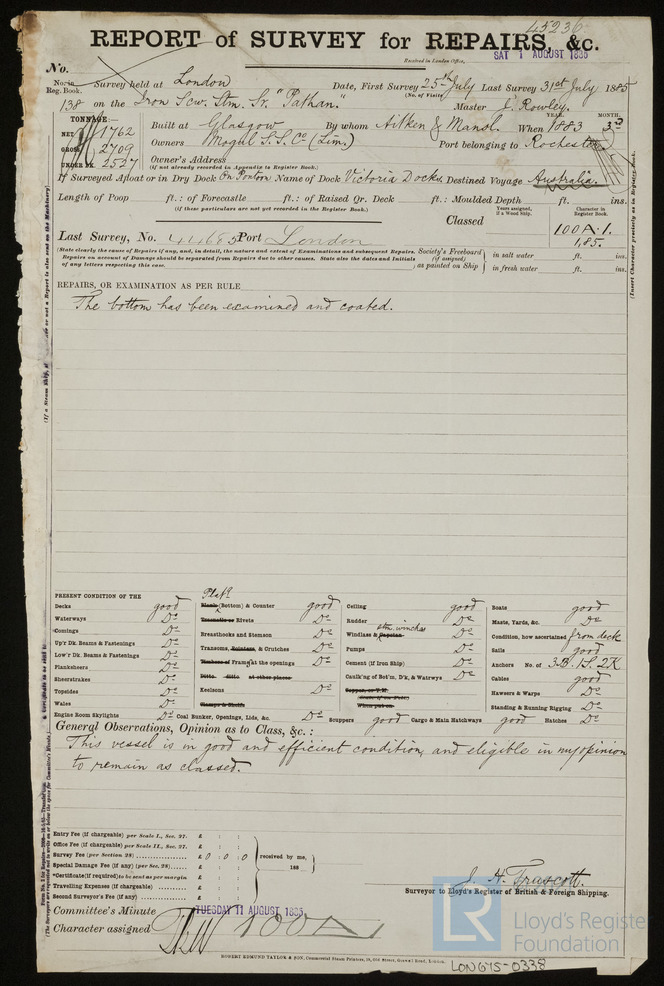 45236
REPORT of SURVEY for REPAIRS, &c.
Received in London Office,
SAT 1 AUGUST 1885
No.
No. in Survey held at London Date, First Survey 25th July Last Survey 31st July 1885
Reg. Book. (No. of Visits)
138 on the Iron Scw. Stm. Sr. "Pathan. Master J. Rowley.
TONNAGE: YEAR. MONTH.
NET 1762 Built at Glasgow By whom Aitken & Mansl. When 1883 3
GROSS 2709 Owners Mogul S.S. Co (Lim.) Port belonging to Rochester
UNDER DK. 2527 Owner's Address
(if not already recorded in Appendix to Register Book.)
If Surveyed Afloat or in Dry Dock On Ponton Name of Dock Victoria Docks. Destined Voyage Australia.
Length of Poop ft.: of Forecastle ft.: of Raised Qr. Deck ft.: Moulded Depth ft. ins.
(if these particulars are not yet recorded in the Register Book.)
Years assigned, if a Wood Ship. Character in Register Book.
Classed 100A.1.
1,85.
Last Survey, No. Port London
(State clearly the cause of Repairs if any, and, in detail, the nature and extent of Examinations and subsequent Repairs.
Repairs on account of Damage should be separated from Repairs due to other causes. State also the dates and Initials
of any letters respecting this case.
Society's Freeboard (if assigned) as painted on Ship
in salt water ft. ins.
in fresh water ft. ins.
REPAIRS, OR EXAMINATION AS PER RULE
The bottom has been examined and coated.
PRESENT CONDITION OF THE
Decks good
Waterways Do
Comings Do
Upr Dk. Beams & Fastenings Do
Low'r Dk. Beams & Fastenings Do
Planksheers Do
Sheerstrakes Do
Topsides Do
Wales Do
Engine Room Skylights Do
Plate
Plank (Bottom) & Counter good
Treenails or Rivets Do
Breasthooks and Stemson Do
Transoms, Pointers, & Crutches Do
Timbers of Frame at the openings Do
Ditto Ditto at other places
Keelsons Do
Clamps & Shelfs
Coal Bunker, Openings, Lids, &c. Do
Ceiling good
Rudder Do
stm. winches
Windlass & Capstan Do
Pumps Do
Cement (if Iron Ship) Do
Caulk'ng of Bot'm, D'k, & Watrwys Do
Copper, or Y.M.
Scuppers good
Cargo & Main Hatchways good
Boats good
Masts, Yards, &c. Do
Condition, how ascertained from deck
Sails good
Anchors No. of 3.B. 1S. 2K
Cables good
Hawsers & Warps Do
Standing & Running Rigging Do
Hatches Do
General Observations, Opinion as to Class, &c.:
This vessel is in good and efficient condition, and eligible in my opinion
to remain as classed.
Entry Fee (if chargeable) per Scale I., Sec. 27. £ : :
Office Fee (if chargeable) per Scale II., Sec. 27. £ : :
Survey Fee (per Section 28) £ 0 : 0 : 0
Special Damage Fee (if any) (per Sec. 28) £ : :
*Certificate (if required) to be sent as per margin £ : :
Travelling Expenses (if chargeable) £ : :
Second Surveyor's Fee (if any) £ : :
received by me,
188
Surveyor to Lloyd's Register of British & Foreign Shipping.
Committee's Minute TUESDAY 11 AUGUST 1885
Character assigned 100A1
ROBERT EDMUND TAYLOR & SON, Commercial Steam Printers, 19, Old Street, Goswell Road, London.
LR Lloyd's Register Foundation
LON675-0338